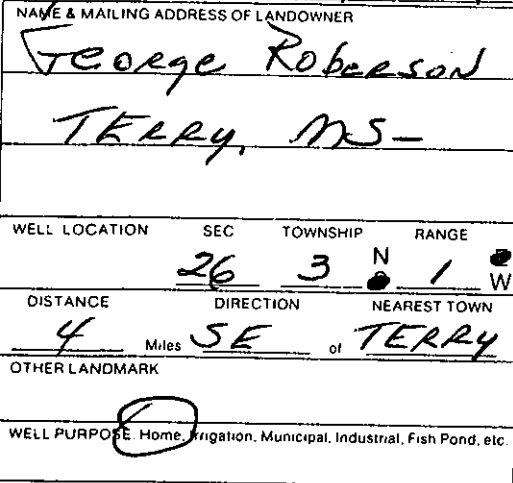 NAME & MAILING ADDRESS OF LANDOWNER
George Roberson
TERRY, MS-
WELL LOCATION SEC TOWNSHIP RANGE
26 3 N 1 W
DISTANCE DIRECTION NEAREST TOWN
4 Miles SE of TERRY
OTHER LANDMARK
WELL PURPOSE: Home, Irrigation, Municipal, Industrial, Fish Pond, etc.